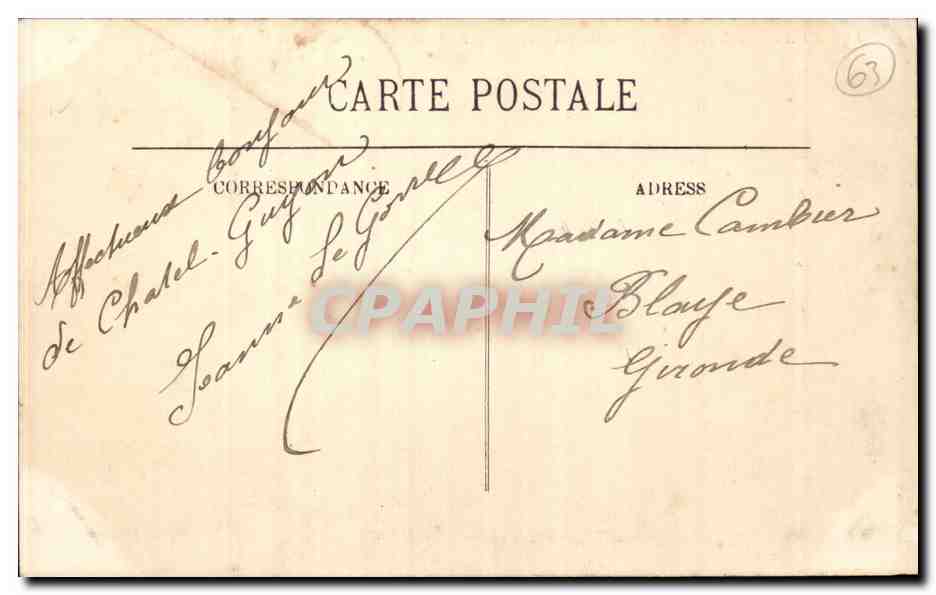 63
CARTE POSTALE
CORRESPONDANCE
ADRESS
Affectueux bonjour
de Chatel-Guyon
Jeanne Le
Madame Cambier
Blaye
Gironde
CPAPHIL